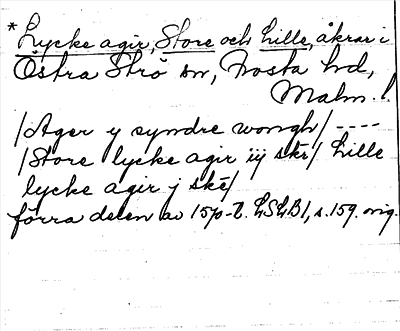 * Lycke agir, Store och Lille, åkrar i
Östra Strö sn, Frosta hd,
Malm. l.
/Ager y syndre wongh/ ----
/Store lycke agir iij skr/ Lille
lycke agir j skr/
förra delen av 1570-t. LSLB1, s. 159. orig.